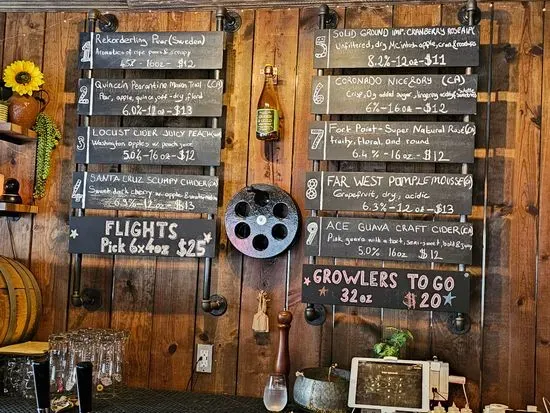 1
Rekorderling Pear (Sweden)
Aromatics of ripe pears & syrupy
4.5% - 16oz - $12
2
Trail (CA)
Pear, apple, quince, off-dry, floral
6.0% - 12oz - $13
3
LOCUST CIDER JUICY PEACH
Washington apples w/ peach juice
5.0% - 16oz - $13
4
SANTA CRUZ SCUMPY CIDER (CA)
Sweet dark cherry
6.9% - 12oz - $13
FLIGHTS
Pick 6x4oz $25
5
SOLID GROUND IMP. CRANBERRY ROSE
Unfiltered, dry, McIntosh apple,
8.2% - 12oz - $11
6
CORONADO NICE & DRY (CA)
Crisp, 0g added sugar, lingering
6% - 12oz - $12
7
Fort Point - Super Natural Rosé (CA)
fruity, floral, and round
6.4% - 16oz - $12
8
FAR WEST POMPLEMOUSSE
Grapefruit, dry, acidic
6.3% - 12oz - $13
9
ACE GUAVA CRAFT CIDER (CA)
Pink guava with a tart, semi-sweet, bold &
5.0% 16oz - $12
GROWLERS TO GO
32oz $20